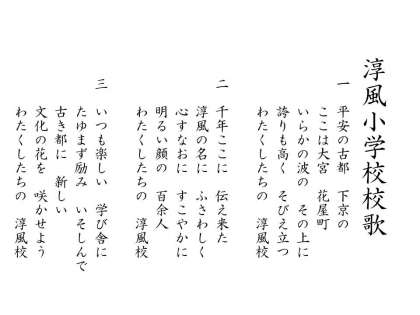 淳風小学校校歌
一 平安の古都 下京の
ここは大宮 花屋町
いらかの波の その上に
誇りも高く そびえ立つ
わたくしたちの 淳風校
二 千年ここに 伝え来た
淳風の名に ふさわしく
心すなおに すこやかに
明るい顔の 百余人
わたくしたちの 淳風校
三 いつも楽しい 学び舎に
たゆまず励み いそしんで
古き都に 新しい
文化の花を 咲かせよう
わたくしたちの 淳風校